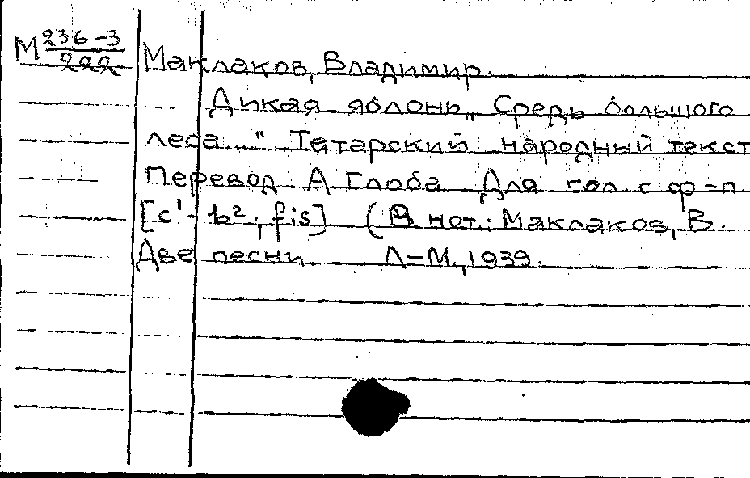 М 236-3
222
Маклаков, Владимир.
Дикая яблонь „Средь большого
леса..." Татарский народный текст
Перевод А Глоба Для гол. с ф-п
[c¹-b²; fis] (В нот.: Маклаков, В.
Две песни. Л-М, 1939.